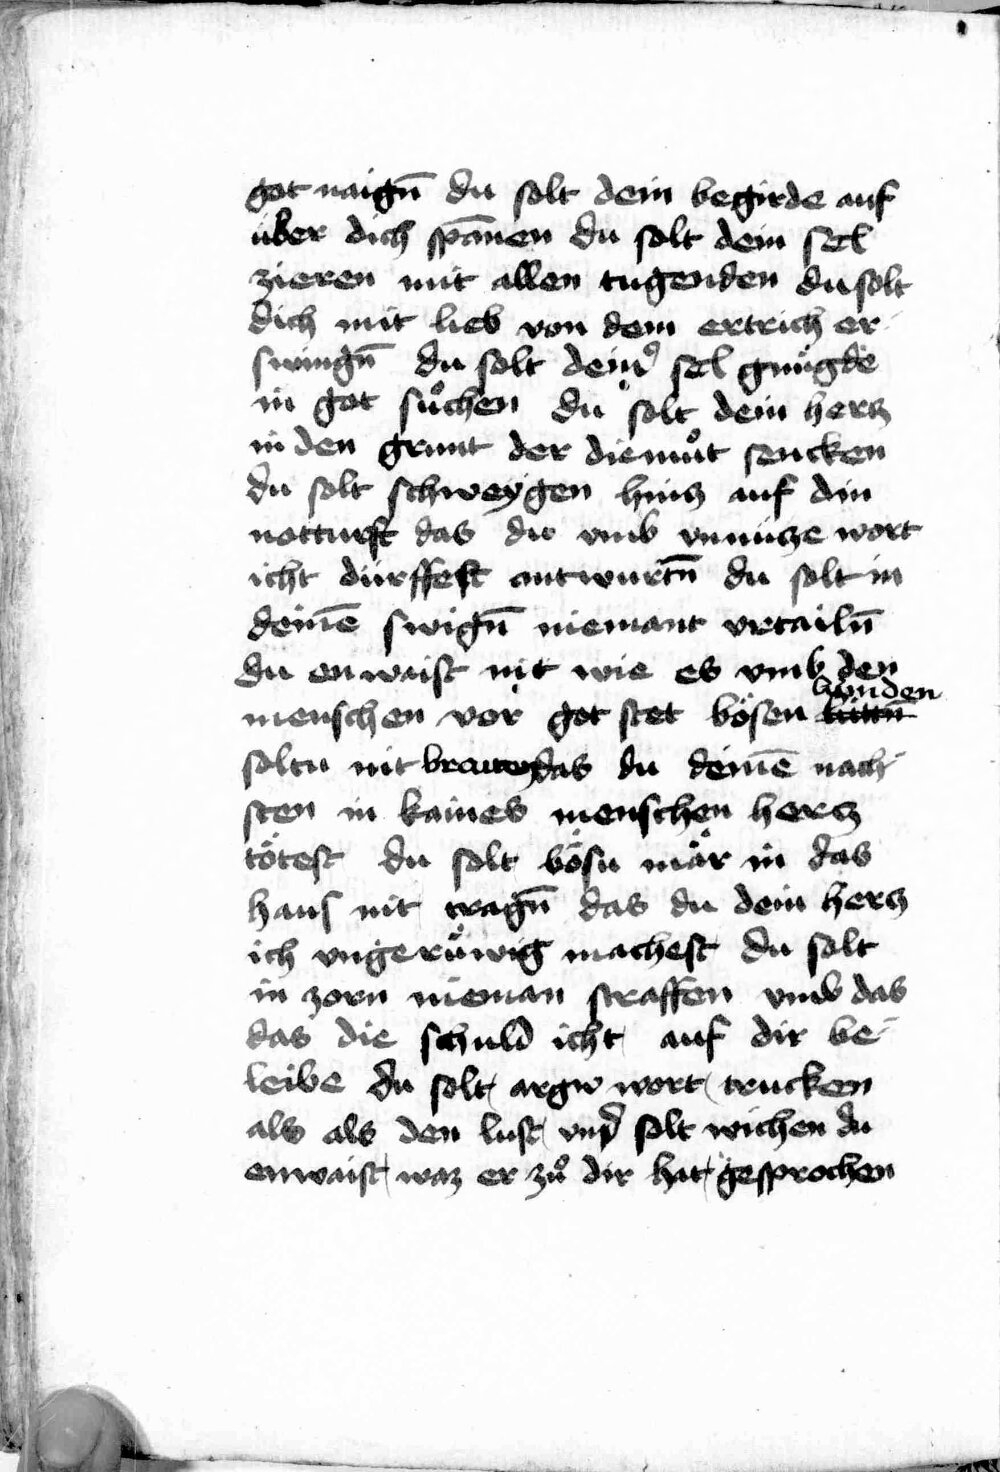 got naign̄ du solt dein begirde auf
über dich spānen du solt dein sel
zieren mit allen tugenden du solt
dich mit lieb von dem ertrich er
swingn̄ du solt deinr̕ sel gnügde
in got sůchen du solt dein hercz
in den grunt der diemůt sencken
du solt schweygen hincz auf din
notturft das du vmb vnnücze wort
icht dürffest antwurtn̄ du solt in
deinē swign̄ niemant vrtailn̄
du enwaist nit wie es vmb den
menschen vor got stet bösen lüttn̄ hunden
soltu nit das du deinē nach
sten in kaines menschen hercz
tötest du solt bösu mär in das
haus nit tragn̄ das du dein hercz
ich vngerůwig machest du solt
in zorn nieman straffen vmb das
das die schuld icht auf dir be
leibe du solt argw wort trucken
als als den lust vnd solt wichen du
enwaist waz er zů dir hat gesprochen